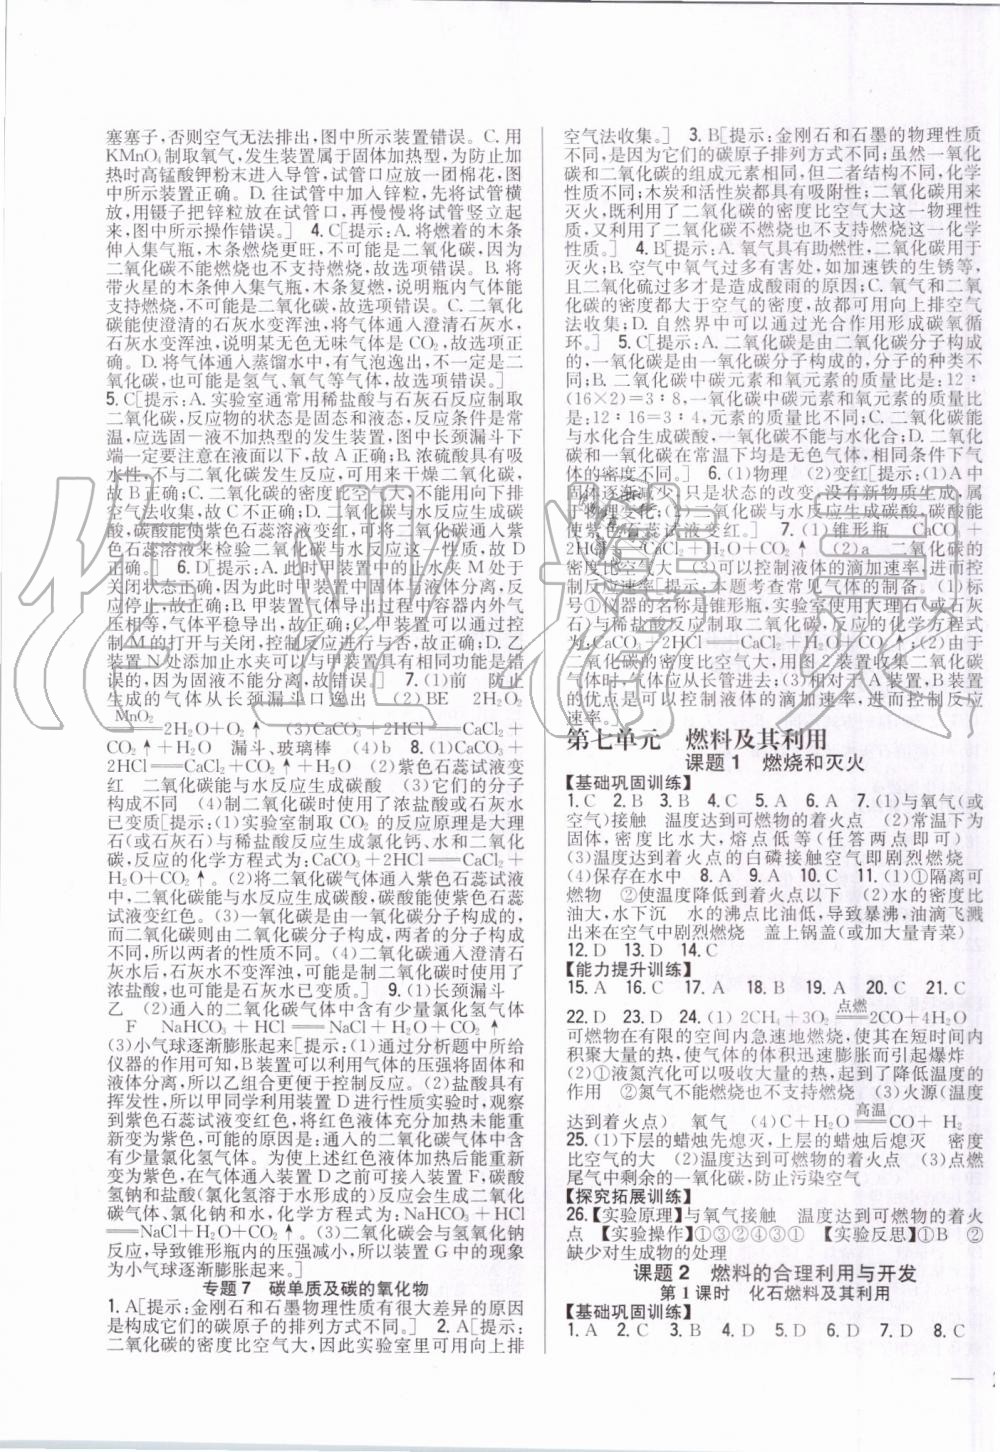 塞塞子,否则空气无法排出,图中所示装置错误。C. 用
KMnO₄制取氧气,发生装置属于固体加热型,为防止加
热时高锰酸钾粉末进入导管,试管口应放一团棉花,图
中所示装置正确。D. 往试管中加入锌粒,先将试管横
放,用镊子把锌粒放在试管口,再慢慢将试管竖立起
来,图中所示操作错误。] 4. C[提示:A. 将燃着的木条
伸入集气瓶,木条燃烧更旺,不可能是二氧化碳,因为
二氧化碳不能燃烧也不支持燃烧,故选项错误。B. 将
带火星的木条伸入集气瓶,木条复燃,说明瓶内气体能
支持燃烧,不可能是二氧化碳,故选项错误。C. 二氧化
碳能使澄清的石灰水变浑浊,将气体通入澄清石灰水,
石灰水变浑浊,说明某无色无味气体是 CO₂,故选项正
确。D. 将气体通入蒸馏水中,有气泡逸出,不一定是二
氧化碳,也可能是氢气、氧气等气体,故选项错误。]
5. C[提示:A. 实验室通常用稀盐酸与石灰石反应制取
二氧化碳,反应物的状态是固态和液态,反应条件是常
温,应选固—液不加热型的发生装置,图中长颈漏斗下
端一定要注意在液面以下,故 A 正确;B. 浓硫酸具有吸
水性,不与二氧化碳发生反应,可用来干燥二氧化碳,
故 B 正确;C. 二氧化碳的密度比空气大,不能用向下排
空气法收集,故 C 不正确;D. 二氧化碳与水反应生成碳
酸,碳酸能使紫色石蕊溶液变红,可将二氧化碳通入紫
色石蕊溶液来检验二氧化碳与水反应这一性质,故 D
正确。] 6. D[提示:A. 此时甲装置中的止水夹 M 处于
关闭状态正确,因为此时甲装置中固体与液体分离,反
应停止,故正确;B. 甲装置气体导出过程中容器内外气
压相等,气体平稳导出,故正确;C. 甲装置可以通过控
制 M 的打开与关闭,控制反应进行与否,故正确;D. 乙
装置 N 处添加止水夹可以与甲装置具有相同功能是错
误的,因为固液不能分离,故错误] 7. (1)前 防止
生成的气体从长颈漏斗口逸出 (2)BE 2H₂O₂
MnO₂
═══2H₂O+O₂↑ (3)CaCO₃+2HCl═══CaCl₂+
CO₂↑+H₂O 漏斗、玻璃棒 (4)b 8. (1)CaCO₃+
2HCl═══CaCl₂+CO₂↑+H₂O (2)紫色石蕊试液变
红 二氧化碳能与水反应生成碳酸 (3)它们的分子
构成不同 (4)制二氧化碳时使用了浓盐酸或石灰水
已变质[提示:(1)实验室制取 CO₂ 的反应原理是大理
石(或石灰石)与稀盐酸反应生成氯化钙、水和二氧化
碳,反应的化学方程式为:CaCO₃+2HCl═══CaCl₂+
H₂O+CO₂↑。(2)将二氧化碳气体通入紫色石蕊试液
中,二氧化碳能与水反应生成碳酸,碳酸能使紫色石蕊
试液变红色。(3)一氧化碳是由一氧化碳分子构成的,
而二氧化碳则由二氧化碳分子构成,两者的分子不同,
所以两者的性质不同。(4)二氧化碳通入澄清石
灰水后,石灰水不变浑浊,可能是制二氧化碳时使用了
浓盐酸,也可能是石灰水已变质。] 9. (1)长颈漏斗
乙 (2)通入的二氧化碳气体中含有少量氯化氢气体
F NaHCO₃+HCl═══NaCl+H₂O+CO₂↑
(3)小气球逐渐膨胀起来[提示:(1)通过分析题中所给
仪器的作用可知,B 装置可以利用气体的压强将固体和
液体分离,所以乙组合更便于控制反应。(2)盐酸具有
挥发性,所以甲同学利用装置 D 进行性质实验时,观察
到紫色石蕊试液变红色,将红色液体充分加热未能重
新变为紫色,可能的原因是:通入的二氧化碳气体中含
有少量氯化氢气体。为使上述红色液体加热后能重新
变为紫色,在气体通入装置 D 之前可接入装置 F,碳酸
氢钠和盐酸(氯化氢溶于水形成的)反应会生成二氧化
碳气体、氯化钠和水,化学方程式为:NaHCO₃+HCl
═══NaCl+H₂O+CO₂↑。(3)二氧化碳会与氢氧化钠
反应,导致锥形瓶内的压强减小,所以装置 G 中的现象
为小气球逐渐膨胀起来。]
专题 7 碳单质及碳的氧化物
1. A[提示:金刚石和石墨物理性质有很大差异的原因
是构成它们的碳原子的排列方式不同。] 2. A[提示:
二氧化碳的密度比空气大,因此实验室里可用向上排
空气法收集。] 3. B[提示:金刚石和石墨的物理性质
不同,是因为它们的碳原子排列方式不同;虽然一氧化
碳和二氧化碳的组成元素相同,但二者结构不同,化学
性质不同;木炭和活性炭都具有吸附性;二氧化碳用来
灭火,既利用了二氧化碳的密度比空气大这一物理性
质,又利用了二氧化碳不燃烧也不支持燃烧这一化学
性质。] 4. B[提示:A. 氧气具有助燃性,二氧化碳用于
灭火;B. 空气中氧气过多有害处,如加速铁的生锈等,
且二氧化硫过多才是造成酸雨的原因;C. 氧气和二氧
化碳的密度都大于空气的密度,故都可用向上排空气
法收集;D. 自然界中可以通过光合作用形成碳氧循
环。] 5. C[提示:A. 二氧化碳是由二氧化碳分子构成
的,一氧化碳是由一氧化碳分子构成的,分子的种类不
同;B. 二氧化碳中碳元素和氧元素的质量比是:12∶
(16×2)=3∶8,一氧化碳中碳元素和氧元素的质量比
是:12∶16=3∶4,元素的质量比不同;C. 二氧化碳能
与水化合生成碳酸,一氧化碳不能与水化合;D. 二氧化
碳和一氧化碳在常温下均是无色气体,相同条件下气
体的密度不同。] 6. (1)物理 (2)变红[提示:(1)A 中
固体逐渐减少,只是状态的改变,没有新物质生成,属
于物理变化;(2)二氧化碳与水反应生成碳酸,碳酸能
使紫色石蕊试液变红。] 7. (1)锥形瓶 CaCO₃+
2HCl═══CaCl₂+H₂O+CO₂↑ (2)a 二氧化碳的
密度比空气大 (3)可以控制液体的滴加速率,进而控
制反应速率[提示:本题考查常见气体的制备。(1)标
号①仪器的名称是锥形瓶,实验室使用大理石(或石灰
石)与稀盐酸反应制取二氧化碳,反应的化学方程式
为:CaCO₃+2HCl═══CaCl₂+H₂O+CO₂↑;(2)由于
二氧化碳的密度比空气大,用图 2 装置收集二氧化碳
气体时,气体应从长管进去;(3)相对于 A 装置,B 装置
的优点是可以控制液体的滴加速率,进而控制反应
速率。]
第七单元 燃料及其利用
课题 1 燃烧和灭火
【基础巩固训练】
1. C 2. B 3. B 4. C 5. A 6. A 7. (1)与氧气(或
空气)接触 温度达到可燃物的着火点 (2)常温下为
固体,密度比水大,熔点低等(任答两点即可)
(3)温度达到着火点的白磷接触空气即剧烈燃烧
(4)保存在水中 8. A 9. A 10. C 11. (1)①隔离可
燃物 ②使温度降低到着火点以下 (2)水的密度比
油大,水下沉 水的沸点比油低,导致暴沸,油滴飞溅
出来在空气中剧烈燃烧 盖上锅盖(或加大量青菜)
12. D 13. D 14. C
【能力提升训练】
15. A 16. C 17. A 18. B 19. A 20. C 21. C
22. D 23. D 24. (1) 2CH₄+3O₂ 点燃═══ 2CO+4H₂O
可燃物在有限的空间内急速地燃烧,使其在短时间内
积聚大量的热,使气体的体积迅速膨胀而引起爆炸
(2)①液氮汽化可以吸收大量的热,起到了降低温度的
作用 ②氮气不能燃烧也不支持燃烧 (3)火源(温度
达到着火点) 氧气 (4)C+H₂O 高温═══ CO+H₂
25. (1)下层的蜡烛先熄灭,上层的蜡烛后熄灭 密度
比空气的大 (2)温度达到可燃物的着火点 (3)点燃
尾气中剩余的一氧化碳,防止污染空气
【探究拓展训练】
26.【实验原理】与氧气接触 温度达到可燃物的着火
点 【实验操作】①③②④③① 【实验反思】①B ②
缺少对生成物的处理
课题 2 燃料的合理利用与开发
第 1 课时 化石燃料及其利用
【基础巩固训练】
1. A 2. C 3. B 4. D 5. D 6. D 7. D 8. C